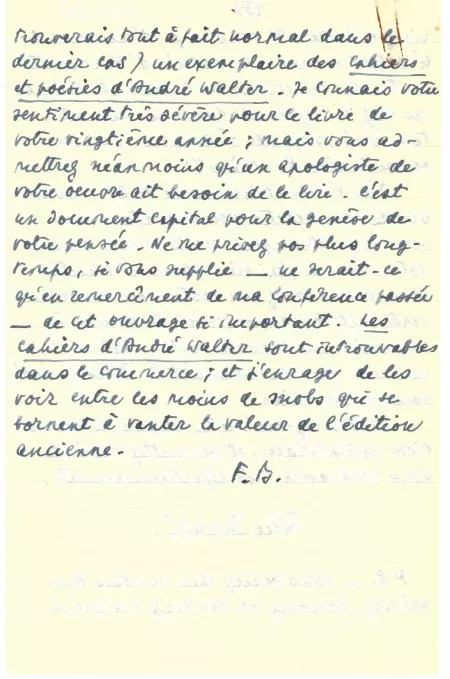 trouverais tout à fait normal dans le
dernier cas) un exemplaire des Cahiers
et poésies d'André Walter. Je connais votre
sentiment très sévère pour ce livre de
votre vingtième année ; mais vous ad-
mettrez néanmoins qu'un apologiste de
votre oeuvre ait besoin de le lire. C'est
un document capital pour la genèse de
votre pensée. Ne me privez pas plus long-
temps, je vous supplie — ne serait-ce
qu'en remerciment de ma conférence passée
— de cet ouvrage si important. Les
Cahiers d'André Walter sont introuvables
dans le commerce ; et j'enrage de les
voir entre les mains de snobs qui se
bornent à vanter la valeur de l'édition
ancienne.
F. B.